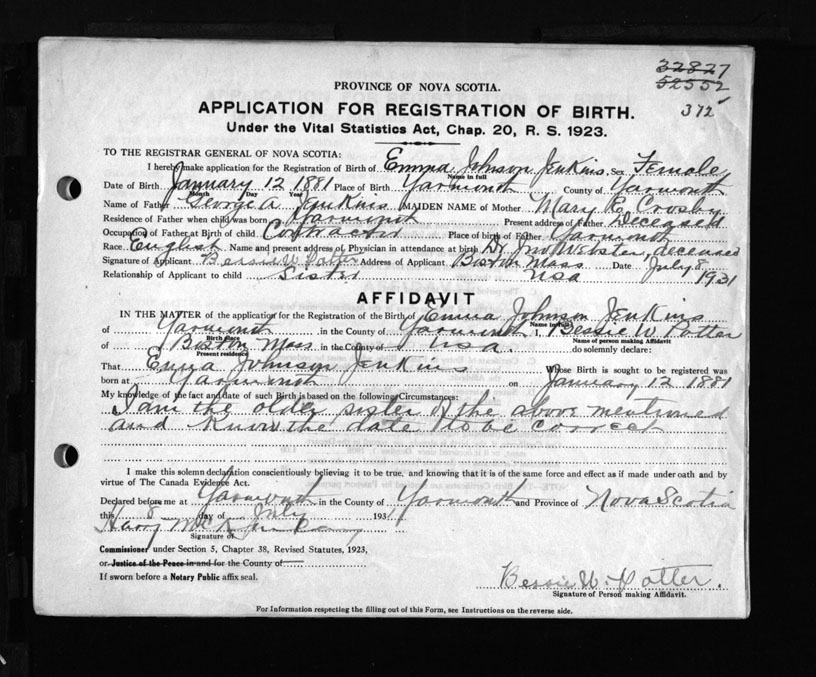 32827
52552
372
PROVINCE OF NOVA SCOTIA.
APPLICATION FOR REGISTRATION OF BIRTH.
Under the Vital Statistics Act, Chap. 20, R. S. 1923.
TO THE REGISTRAR GENERAL OF NOVA SCOTIA:
I hereby make application for the Registration of Birth of Emma Johnson Jenkins, Sex Female
Name in full
Date of Birth January 12 1881 Place of Birth Yarmouth County of Yarmouth
Month Day Year
Name of Father George A Jenkins MAIDEN NAME of Mother Mary E. Crosby
Residence of Father when child was born Yarmouth Present address of Father Deceased
Occupation of Father at Birth of child. Contractor Place of birth of Father Yarmouth
Race English Name and present address of Physician in attendance at birth Dr Jno Webster, deceased
Signature of Applicant Bessie W. Potter Address of Applicant Boston Mass Date July 8 1931
Relationship of Applicant to child Sister usa
AFFIDAVIT
IN THE MATTER of the application for the Registration of the Birth of Emma Johnson Jenkins
Name in full
of Yarmouth in the County of Yarmouth I, Bessie W. Potter
Birth place Name of person making Affidavit
of Boston Mass in the County of usa. do solemnly declare:
Present residence
That Emma Johnson Jenkins Whose Birth is sought to be registered was
born at Yarmouth on January 12 1881
My knowledge of the fact and date of such Birth is based on the following Circumstances:
I am the older sister of the above mentioned
and know the date to be correct
I make this solemn declaration conscientiously believing it to be true, and knowing that it is of the same force and effect as if made under oath and by
virtue of The Canada Evidence Act.
Declared before me at Yarmouth in the County of Yarmouth and Province of Nova Scotia
this 8 day of July 1931
Harry
Signature of
Commissioner under Section 5, Chapter 38, Revised Statutes, 1923,
or Justice of the Peace in and for the County of
If sworn before a Notary Public affix seal.
Bessie W. Potter.
Signature of Person making Affidavit.
For Information respecting the filling out of this Form, see Instructions on the reverse side.